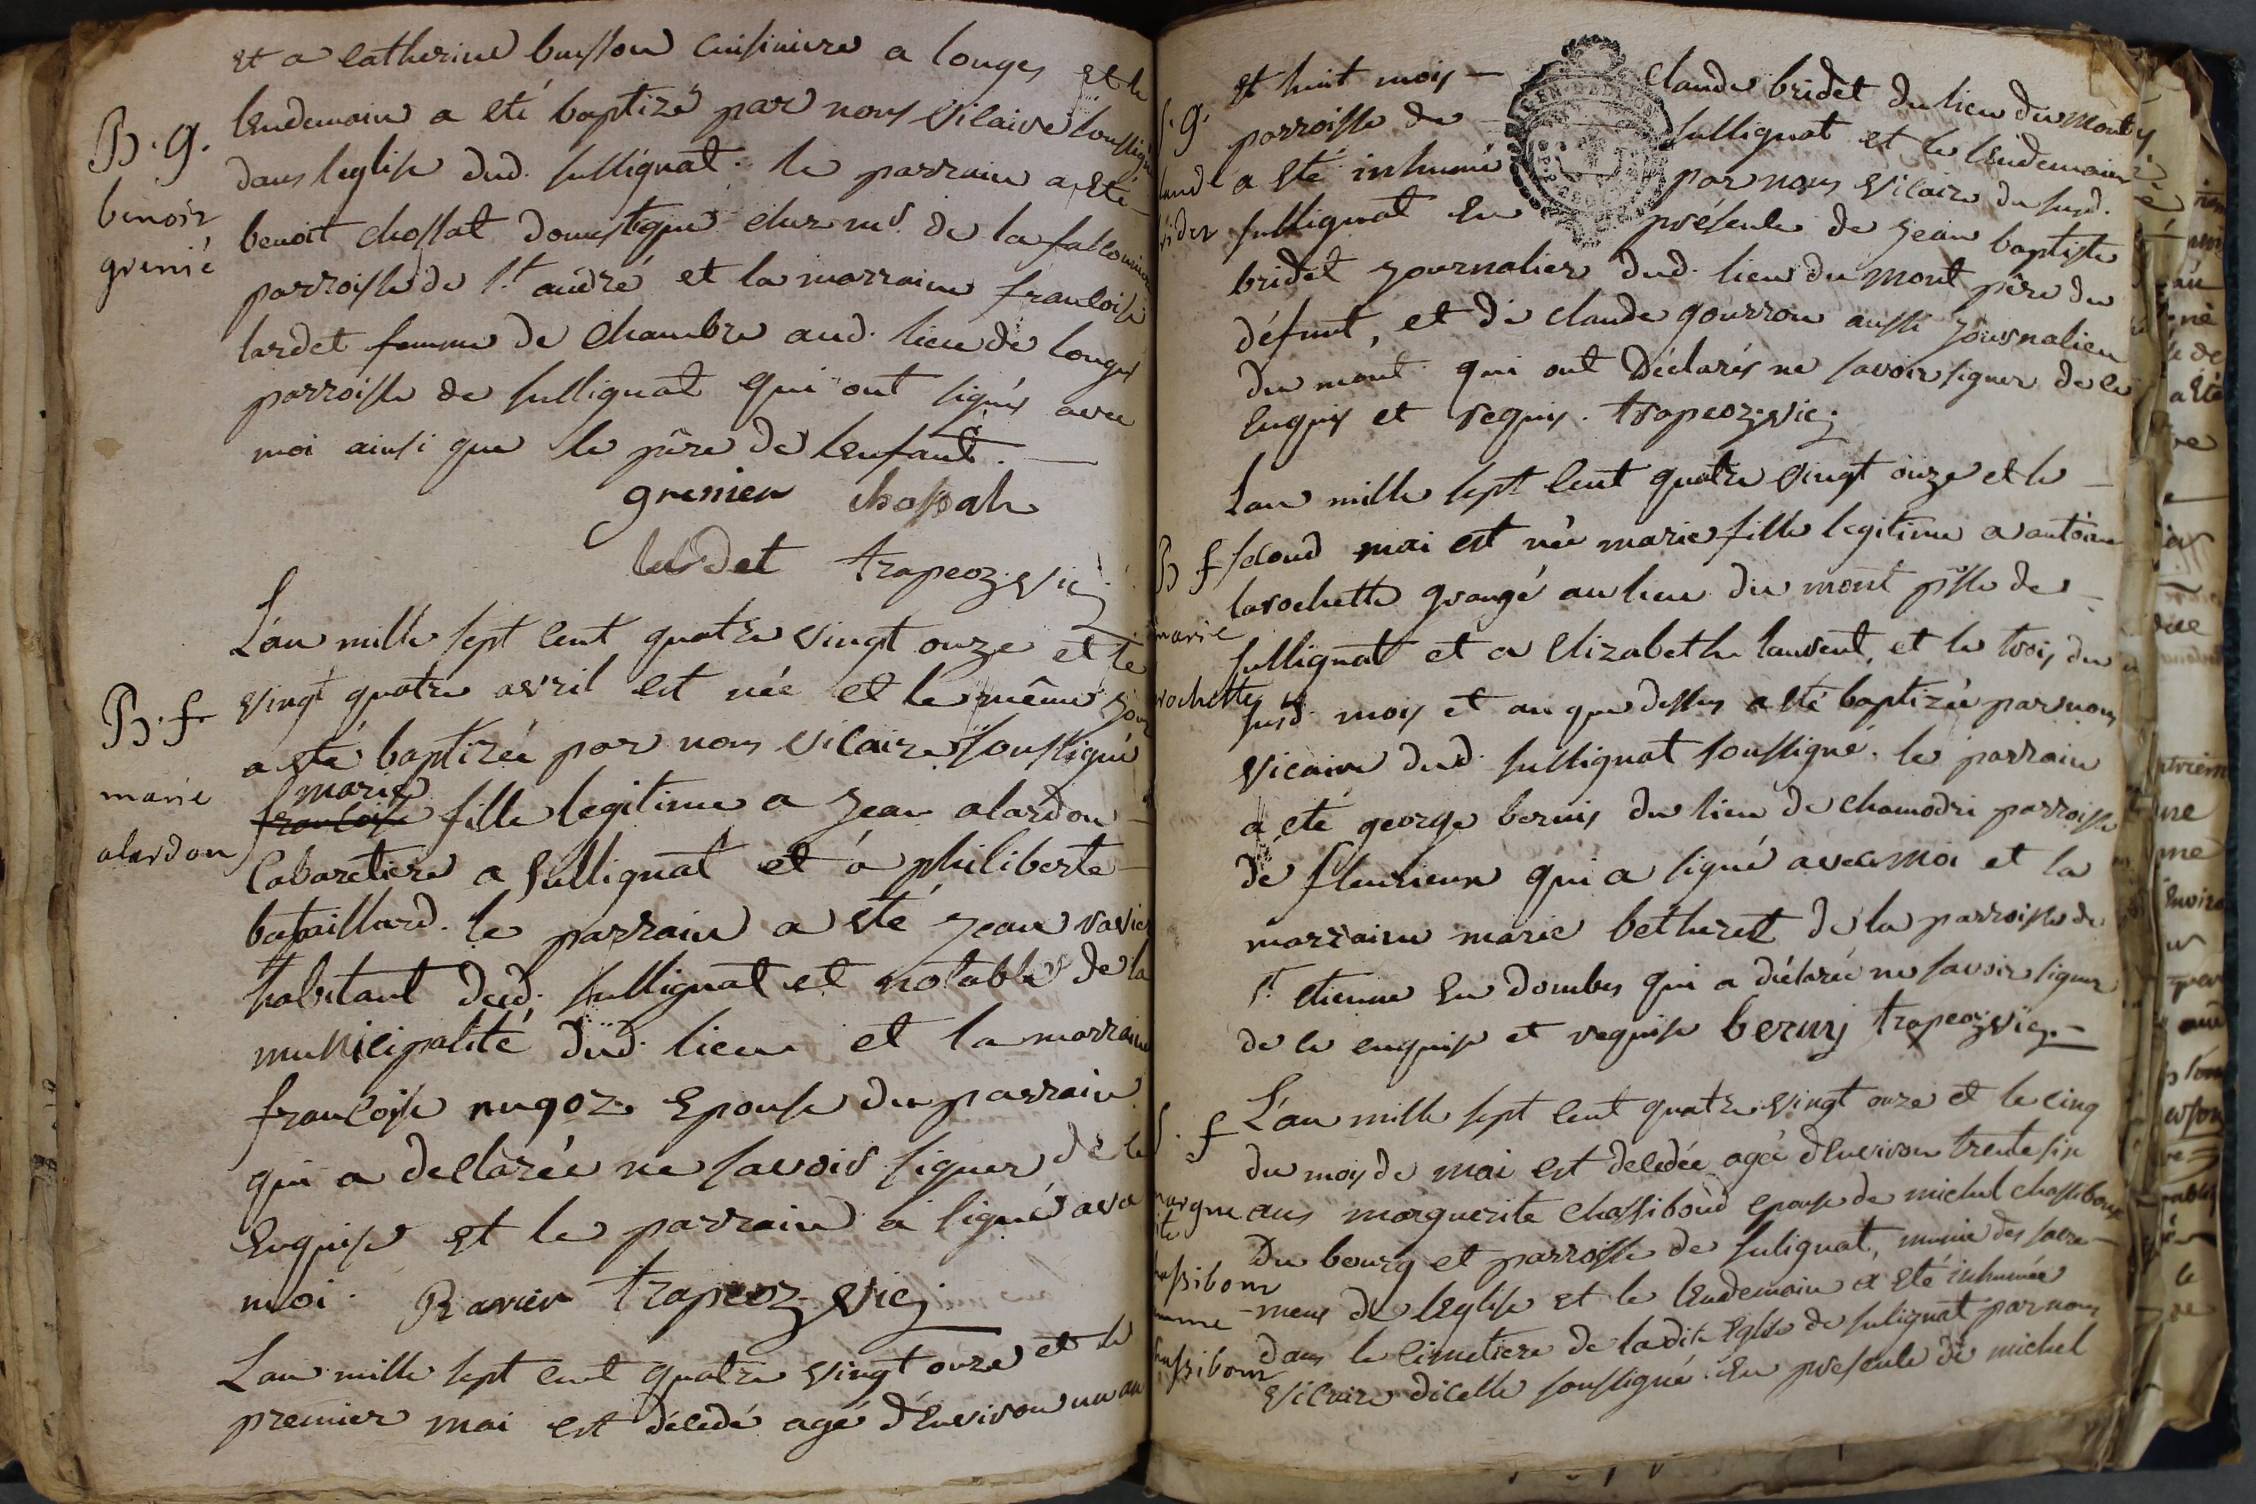 et a catherine buisson cuisiniere a longes et le
B. g.
benoit
grenié
lendemain a eté baptizé par nous vicaire soussigné
dans leglise dud. sullignat. le parrain a eté
benoit chossat domestique chez mr. de la
parroisse de st. andré et la marraine francoise
lardet femme de chambre aud. lieu de longes
parroisse de sullignat qui ont signés avec
moi ainsi que le père de lenfant.
grenier chossat
lardet trapeoz vic;
L'an mille sept cent quatre vingt onze et le
B. f
marie
alardon
vingt quatre avril est née et le même jour
a eté baptizée par nous vicaire soussigné
marie
francoise fille legitime a jean alardon
Cabaretier a sullignat et a philiberte
bataillard. le parrain a eté jean ravier
habitant dud. sullignat et notable de la
municipalité dud. lieu et la marraine
francoise nugoz Epouse du parrain
qui a declarée ne savoir signer de ce
Enquise et le parrain a signé avec
moi. Ravier trapeoz vic;
L'an mille sept cent quatre vingt onze et le
premier mai est décedé agé d'Environ un an
et huit mois — claude bridet du lieu du mont
s. g.
parroisse de — sullignat et le lendemain
a eté inhumé par nous vicaire du susd.
sullignat En présence de jean baptiste
bridet journalier dud. lieu du mont père du
défunt, et de claude gourron aussi journalier
du mont qui ont déclarés ne savoir signer de ce
Enquis et requis. trapeoz vic;
L'an mille sept cent quatre vingt onze et le —
B f
marie
rochette
second mai est née marie fille legitime a antoine
larochette grangé au lieu du mont psse de —
sullignat et a Elizabeth laurent, et le trois du
susd. mois et an que dessus a eté baptizée par nous
vicaire dud. sullignat soussigné. le parrain
a eté george bernis du lieu de chamodri parroisse
de fleurieux qui a signé avec moi et la
marraine marie bethurest de la parroisse de
st. etienne En dombes qui a déclarée ne savoir signer
de ce enquise et requise bernis trapeoz vic;
L'an mille sept cent quatre vingt onze et le cinq
s. f
du mois de mai est decedée agée d'Environ trente six
ans marguerite chassiboud epouse de michel chassiboud
Du bourg et parroisse de sulignat, munie des sacre-
mens de l'Eglise et le lendemain a eté inhumée
dans le cimetiere de ladite Eglise de sulignat par nous
vicaire dicelle soussigné. En presence de michel